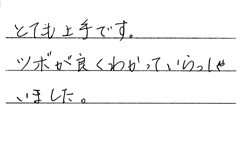 とても上手です。
ツボが良くわかっていらっしゃ
いました。